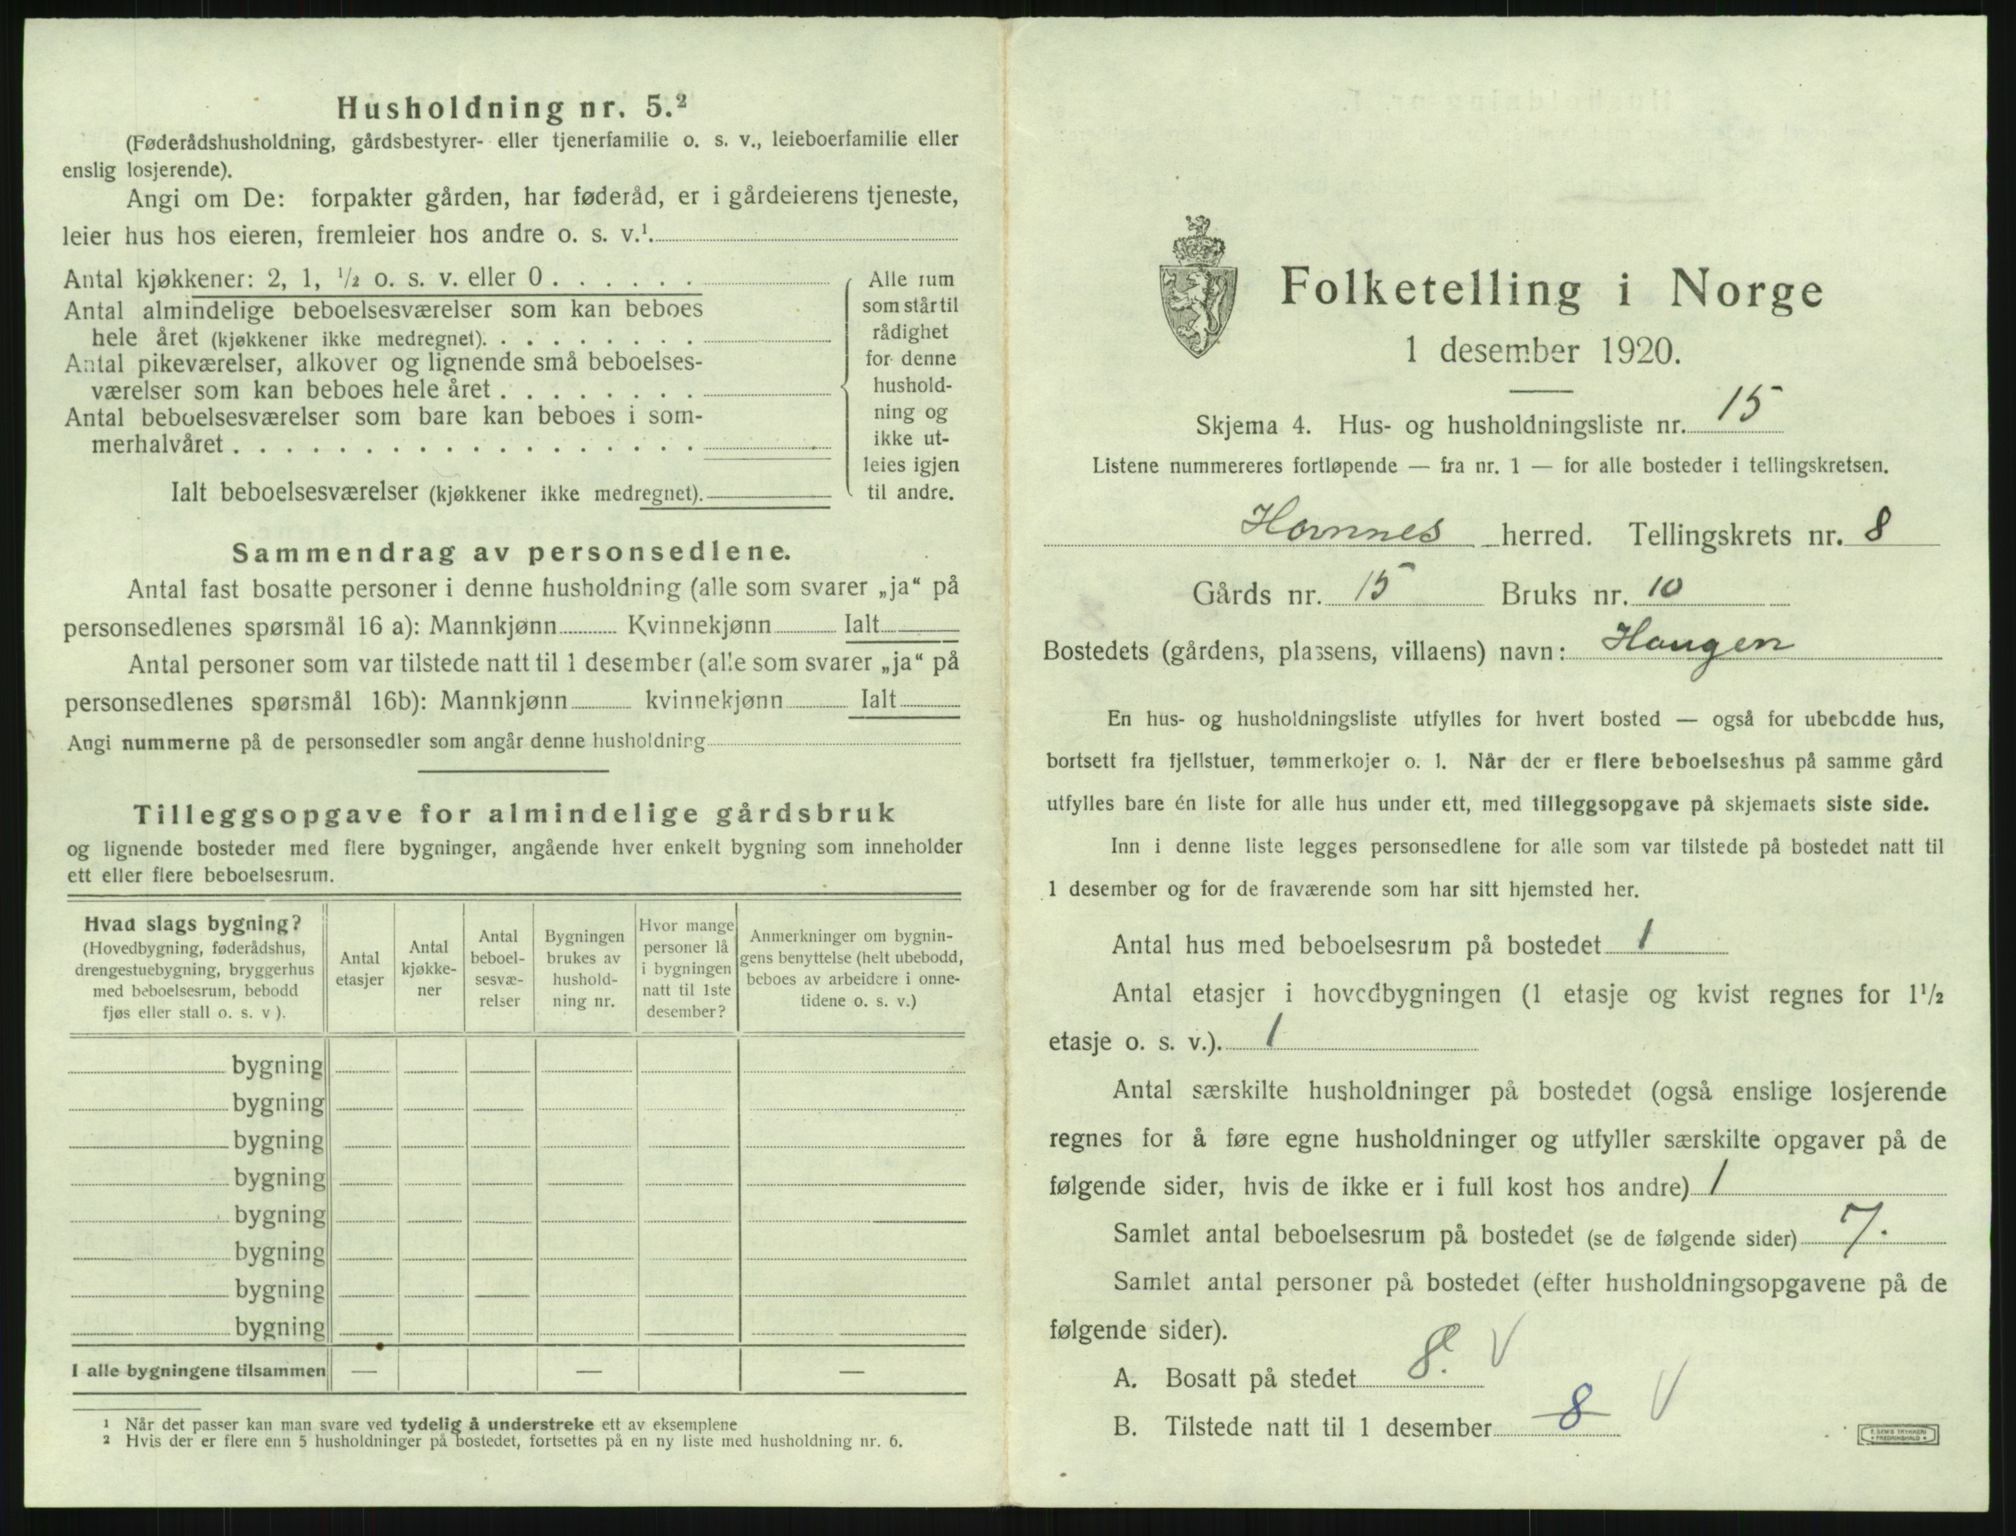 Husholdning nr. 5.²
(Føderådshusholdning, gårdsbestyrer- eller tjenerfamilie o. s. v., leieboerfamilie eller
enslig losjerende).
Angi om De: forpakter gården, har føderåd, er i gårdeierens tjeneste,
leier hus hos eieren, fremleier hos andre o. s. v.¹.
Antal kjøkkener: 2, 1, ½ o. s. v. eller 0 . . . . . .
Antal almindelige beboelsesværelser som kan beboes
hele året (kjøkkener ikke medregnet). . . . . . . . .
Antal pikeværelser, alkover og lignende små beboelses-
værelser som kan beboes hele året . . . . . . . .
Antal beboelsesværelser som bare kan beboes i som-
merhalvåret . . . . . . . . . . . . . . . . . .
Ialt beboelsesværelser (kjøkkener ikke medregnet).
Alle rum
som står til
rådighet
for denne
hushold-
ning og
ikke ut-
leies igjen
til andre.
Sammendrag av personsedlene.
Antal fast bosatte personer i denne husholdning (alle som svarer „ja“ på
personsedlenes spørsmål 16 a): Mannkjønn Kvinnekjønn Ialt
Antal personer som var tilstede natt til 1 desember (alle som svarer „ja“ på
personsedlenes spørsmål 16b): Mannkjønn kvinnekjønn Ialt
Angi nummerne på de personsedler som angår denne husholdning
Tilleggsopgave for almindelige gårdsbruk
og lignende bosteder med flere bygninger, angående hver enkelt bygning som inneholder
ett eller flere beboelsesrum.
Hvad slags bygning?
(Hovedbygning, føderådshus,
drengestuebygning, bryggerhus
med beboelsesrum, bebodd
fjøs eller stall o. s. v ).
Antal
etasjer
Antal
kjøkke-
ner
Antal
beboel-
sesvæ-
relser
Bygningen
brukes av
hushold-
ning nr.
Hvor mange
personer lå
i bygningen
natt til 1ste
desember?
Anmerkninger om bygnin-
gens benyttelse (helt ubebodd,
beboes av arbeidere i onne-
tidene o. s. v.)
bygning
bygning
bygning
bygning
bygning
bygning
bygning
bygning
I alle bygningene tilsammen — — —
¹ Når det passer kan man svare ved tydelig å understreke ett av eksemplene
² Hvis der er flere enn 5 husholdninger på bostedet, fortsettes på en ny liste med husholdning nr. 6.
Folketelling i Norge
1 desember 1920.
Skjema 4. Hus- og husholdningsliste nr. 15
Listene nummereres fortløpende — fra nr. 1 — for alle bosteder i tellingskretsen.
Hornnes herred. Tellingskrets nr. 8
Gårds nr. 15 Bruks nr. 10
Bostedets (gårdens, plassens, villaens) navn: Haugen
En hus- og husholdningsliste utfylles for hvert bosted — også for ubebodde hus,
bortsett fra fjellstuer, tømmerkojer o. l. Når der er flere beboelseshus på samme gård
utfylles bare én liste for alle hus under ett, med tilleggsopgave på skjemaets siste side.
Inn i denne liste legges personsedlene for alle som var tilstede på bostedet natt til
1 desember og for de fraværende som har sitt hjemsted her.
Antal hus med beboelsesrum på bostedet 1
Antal etasjer i hovedbygningen (1 etasje og kvist regnes for 1½
etasje o. s. v.). 1
Antal særskilte husholdninger på bostedet (også enslige losjerende
regnes for å føre egne husholdninger og utfyller særskilte opgaver på de
følgende sider, hvis de ikke er i full kost hos andre) 1
Samlet antal beboelsesrum på bostedet (se de følgende sider) 7.
Samlet antal personer på bostedet (efter husholdningsopgavene på de
følgende sider).
A. Bosatt på stedet 8. V
B. Tilstede natt til 1 desember 8 V
E. SEMS TRYKKERI
FREDRIKSHALD